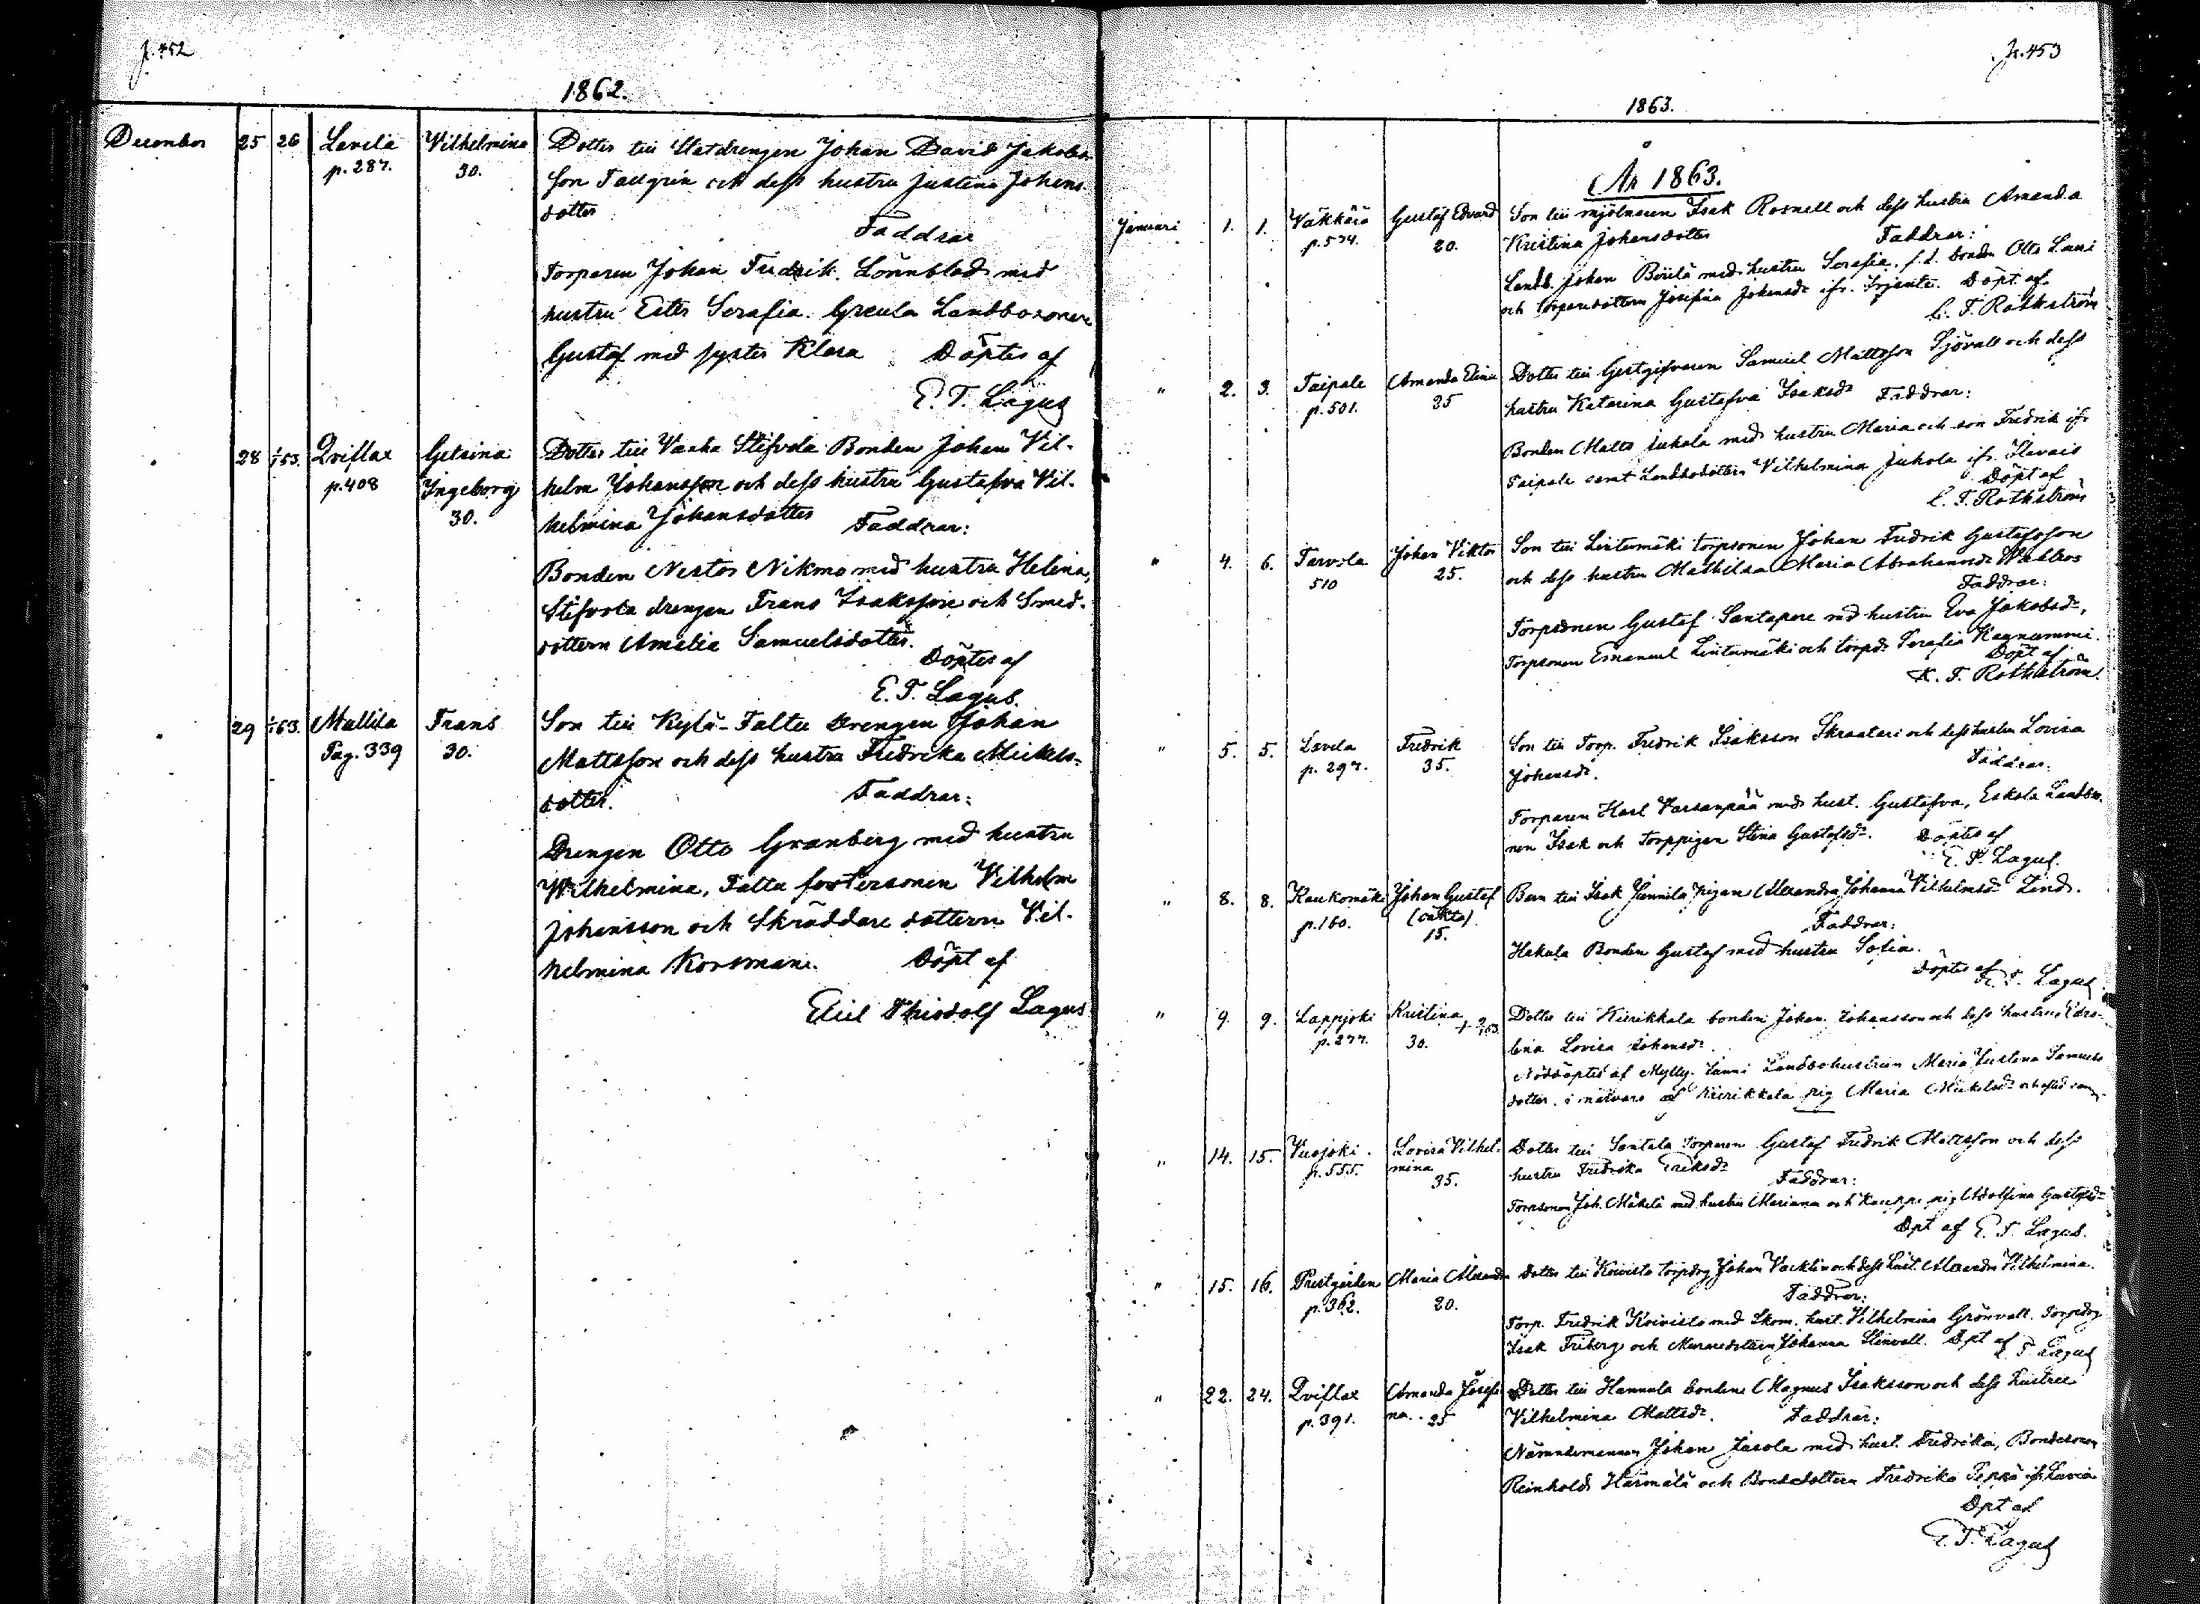 p. 452
1862.
December 25 26 Lavila Vilhelmina Dotter till Statdrengen Johan David Jakobs-
p. 287. 30. son Tallgrén och dess hustru Justina Johans-
dotter
Faddrar
Torparen Johan Fredrik Lönnblad med
hustru Ester Serafia. Greula Landbosonen
Gustaf med syster Klara Döptes af
E. T. Lagus
28 1/1 53. Qviflax Gelsina Dotter till Vanha Stifvola Bonden Johan Vil-
p. 408 Ingeborg helm Johansson och dess hustru Gustafva Vil-
30. helmina Johansdotter Faddrar:
Bonden Nestor Nikmo med hustru Helena,
Stifvola drengen Frans Isaksson och Smed-
dottern Amalia Samuelsdotter.
Döptes af
E. T. Lagus.
29 1/1 63. Mullila Frans Son till Kylä-Faltu Drengen Johan
Pag. 339 30. Mattsson och dess hustru Fredrika Mickels-
dotter. Faddrar:
Drengen Otto Granberg med hustru
Wilhelmina, Faltu fostersonen Vilhelm
Johansson och Skräddare dottern Vil-
helmina Korsman. Döpt af
Eliel Thiodolf Lagus
p. 453
1863.
År 1863.
Januari 1. 1. Väkkärä Gustaf Edvard Son till mjölnaren Isak Rosnell och dess hustru Amanda
p. 574. 20. Kristina Johansdotter Faddrar:
Landb. Johan Börilä med hustru Serafia, f.d. bonden Otto Lassi
och torparedottern Josefina Johansdr ifr. Döpt af
C. F. Rothström
" 2. 3. Taipale Amanda Elina Dotter till Gestgifvaren Samuel Mattsson Sjövall och dess
p. 501. 25 hustru Katarina Gustafva Isaksdr Faddrar:
Bonden Matts Juhola med hustru Maria och son Fredrik ifr
Taipale samt Landbodottern Vilhelmina Juhola ifr.
Döpt af
C. F. Rothström
" 4. 6. Tarvola Johan Viktor Son till Lintumäki torpsonen Johan Fredrik Gustafsson
510 25. och dess hustru Mathilda Maria Abrahamsdr Wahlros
Faddrar:
Torpsonen Gustaf Santapere med hustru Eva Jakobsdr,
Torpsonen Emanuel Lintumäki och torpdr Serafia
Döpt af
K. F. Rothström.
" 5. 5. Lavila Fredrik Son till Torp. Fredrik Isaksson Skraatari och dess hustru Lovisa
p. 297. 35. Johansdr. Faddrar.
Torparen Karl Varsanpää med hust. Gustafva, Eskola Landbo-
nen Isak och Torppigan Stina Gustafsdr. Döptes af
E. T. Lagus.
" 8. 8. Kaukomäki Johan Gustaf Barn till Isak Junnila pigan Alexandra Johanna Vilhelmsdr Lind.
p. 160. (oäkta) Faddrar:
15.
Hakula Bonden Gustaf med hustru Sofia.
Döptes af E. T. Lagus
" 9. 9. Lappjoki Kristina Dotter till Kierikkala bonden Johan Johansson och dess hustru Edro-
p. 277. 30. lina Lovisa Johansdr.
Nöddöptes af Mylly-Lanni Landbohustrun Maria Justina Samuels
dotter i närvaro af Kierikkala pig Maria Mickelsdr
" 14. 15. Vuojoki. Lovisa Vilhel- Dotter till Santala Torparen Gustaf Fredrik Mattsson och dess
p. 555. mina hustru Fredrika Eriksdr Faddrar:
35.
Torpsonen Joh. Mäkelä med hustru Mariana och Kauppi pig Adolfina Gustafsdr
Dpt af E. T. Lagus.
" 15. 16. Prestgården Maria Alexandra Dotter till Koivisto torpdrg Johan Vacklin och dess hust Alexandra Vilhelmina.
p. 362. 20. Faddrar:
Torp. Fredrik Koivisto med Skom. hust. Vilhelmina Grönvall. Torpdrg
Isak Friberg och Murmedottern Johanna Stenvall. Dpt af E. T. Lagus
" 22. 24. Qviflax Amanda Josefi- Dotter till Hannula bonden Magnus Isaksson och dess hustru
p. 391. na. 25 Vilhelmina Mattsdr. Faddrar:
Nämndemannen Johan Jasola med hust. Fredrika, Bondesonen
Reinhold Härmälä och Bondedottern Fredrika Seppä ifr Luvia
Dpt af
E. T. Lagus